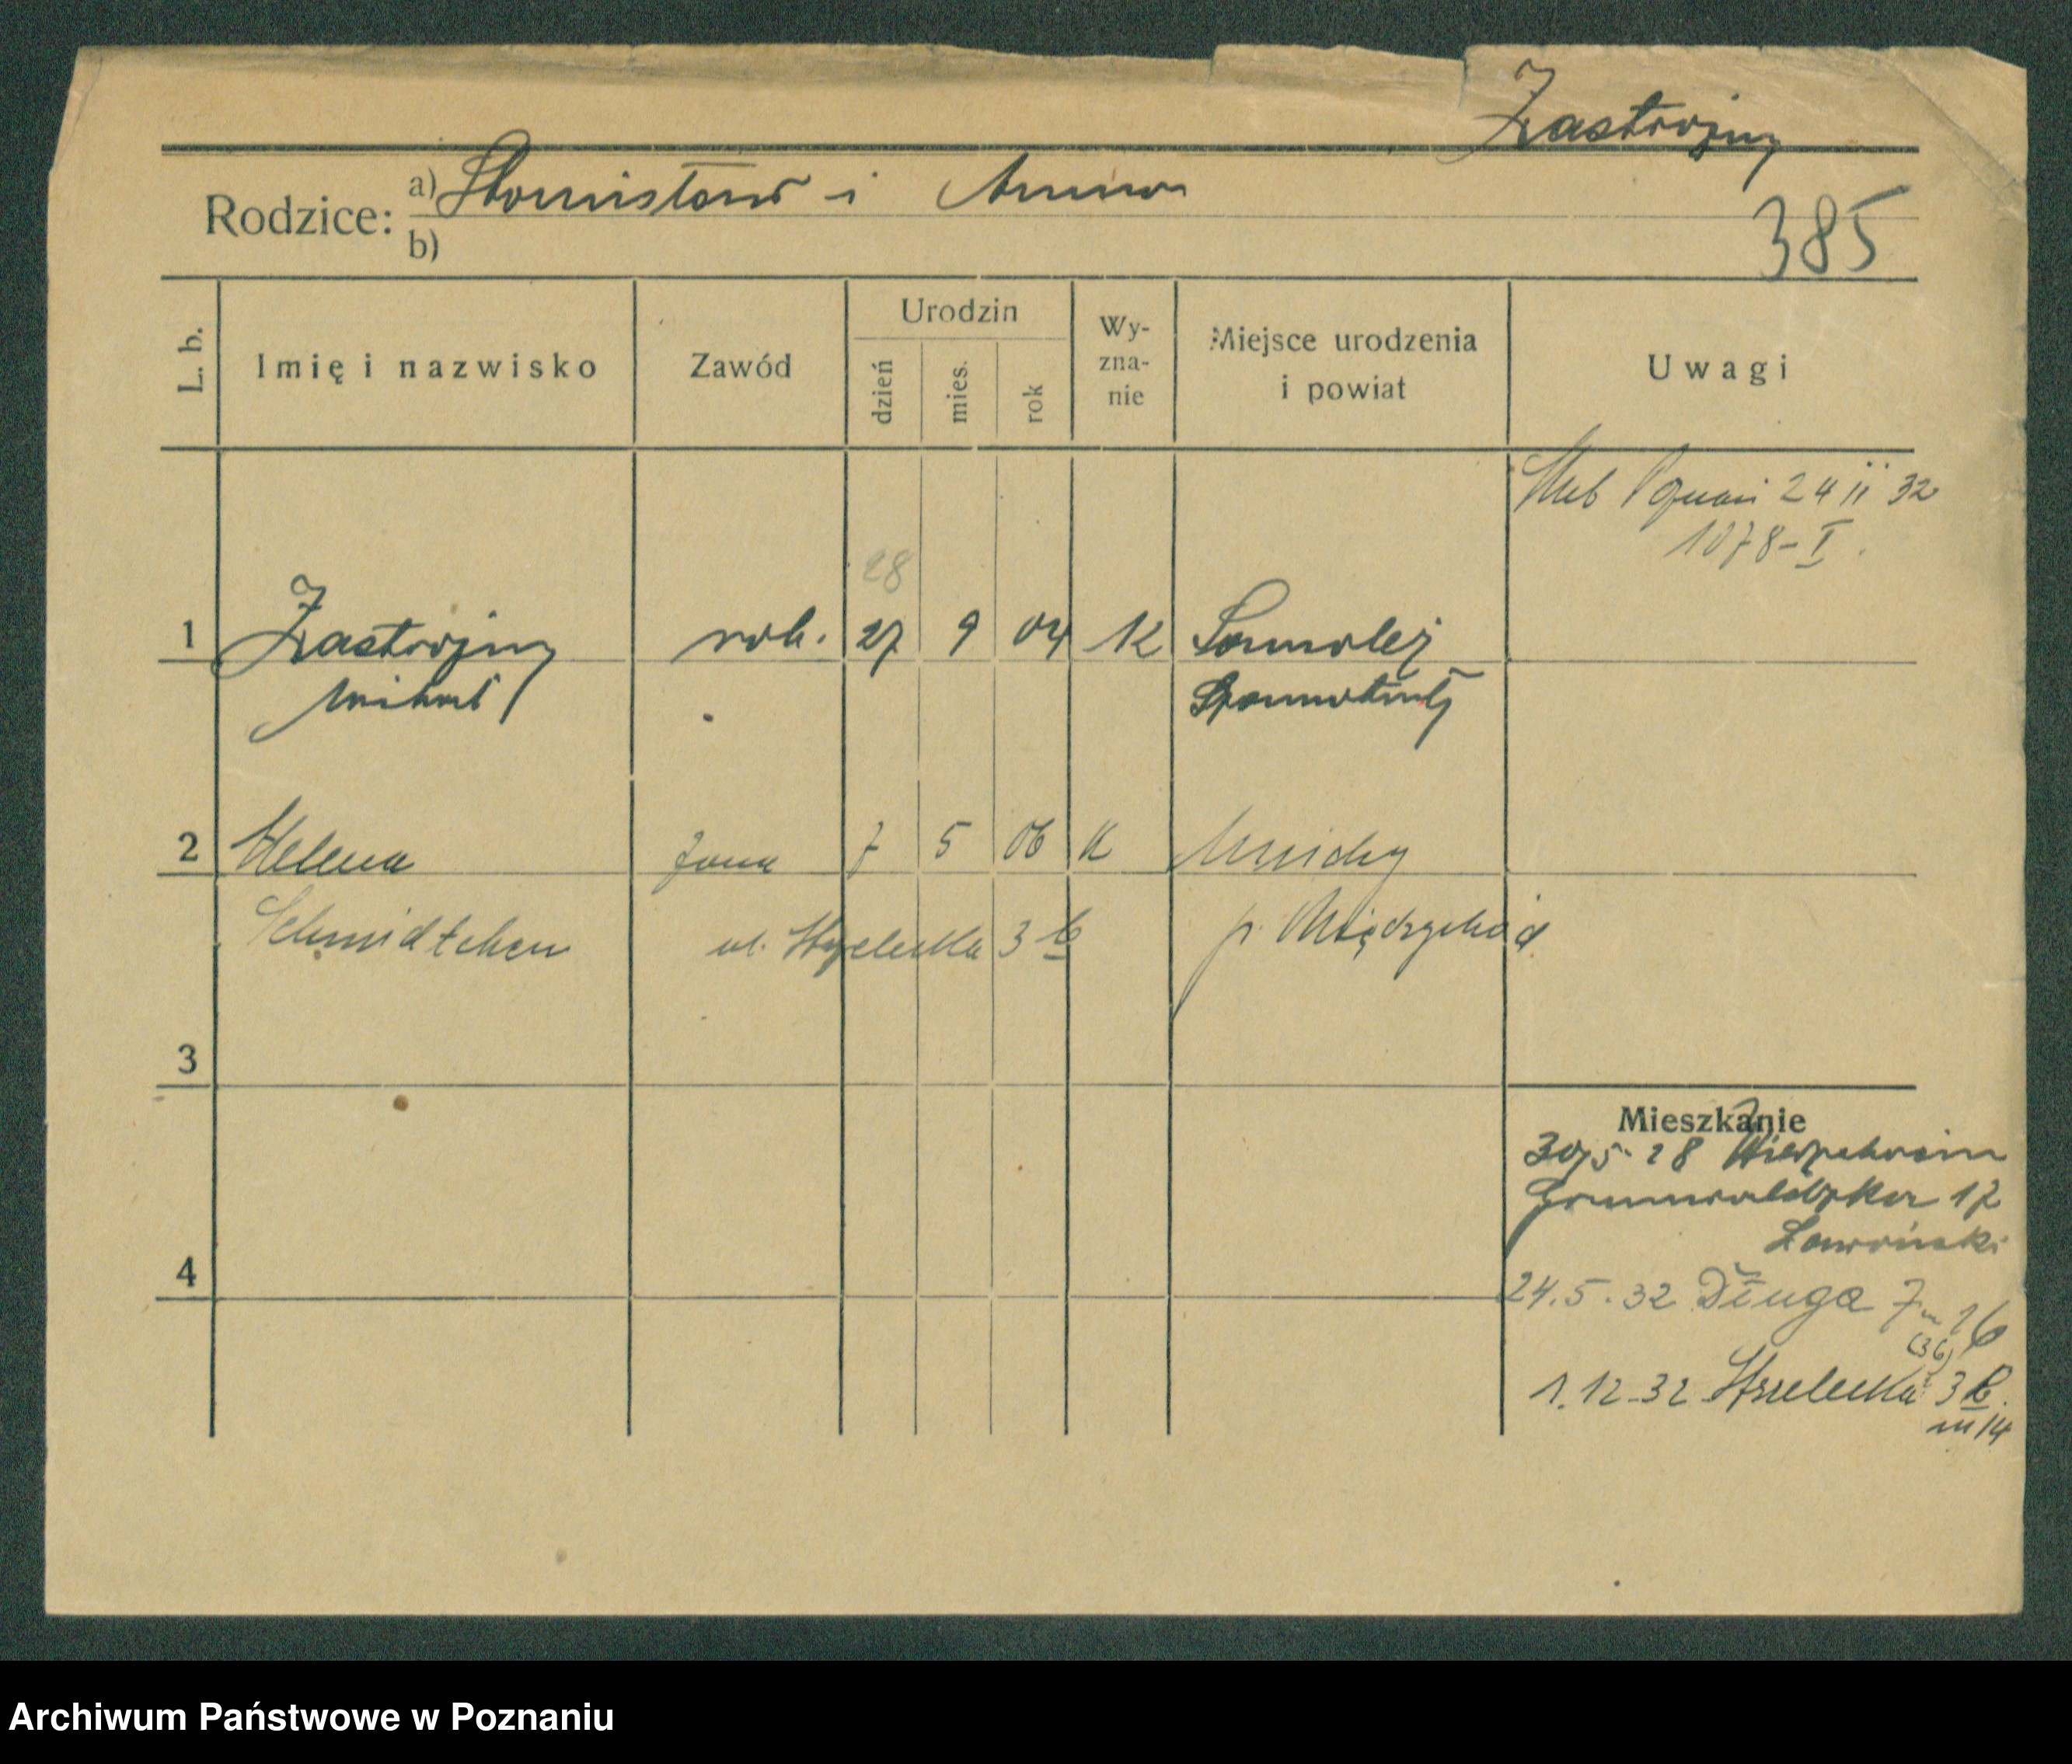 Zastrożny
Rodzice: a) Stanisław i Anna
b)
385
L. b.
Imię i nazwisko
Zawód
Urodzin
dzień
mies.
rok
Wy-
zna-
nie
Miejsce urodzenia
i powiat
Uwagi
Ślub Poznań 24 ii 32
1078-I.
28
1 Zastrożny rob. 27 9 04 K Samołęż
Michał Szamotuły
2 Helena żona 7 5 06 K Mnichy
Schmidtchen ul. Strzelecka 3 b p. Międzychód
3
4
Mieszkanie
30/5. 28
Grunwaldzka 17
Ławiński
24.5.32 Długa 7 m 16
(36)
1.12.32 Strzelecka 3 b.
m 14
Archiwum Państwowe w Poznaniu